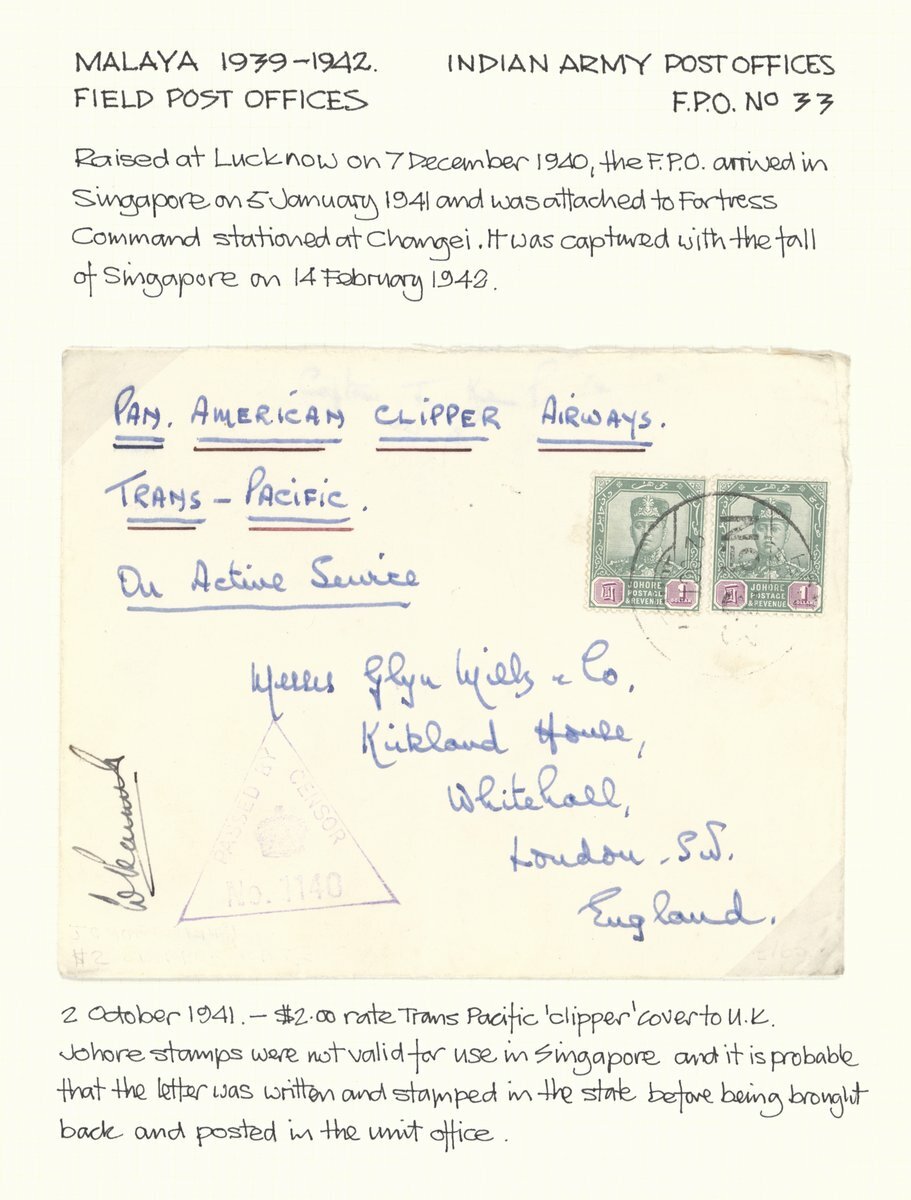 MALAYA 1939-1942. INDIAN ARMY POST OFFICES
FIELD POST OFFICES F.P.O. No 33
Raised at Lucknow on 7 December 1940, the F.P.O. arrived in
Singapore on 5 January 1941 and was attached to Fortress
Command stationed at Changei. It was captured with the fall
of Singapore on 14 February 1942.
PAN. AMERICAN CLIPPER AIRWAYS.
TRANS-PACIFIC.
On Active Service
JOHORE
POSTAGE
& REVENUE
1
JOHORE
POSTAGE
& REVENUE
1
Messrs Glyn Mills & Co,
Kirkland House,
Whitehall,
London. S.W.
England.
PASSED BY CENSOR
No. 1140
2 October 1941. - $2.00 rate Trans Pacific 'clipper' cover to U.K.
Johore stamps were not valid for use in Singapore and it is probable
that the letter was written and stamped in the state before being brought
back and posted in the unit office.